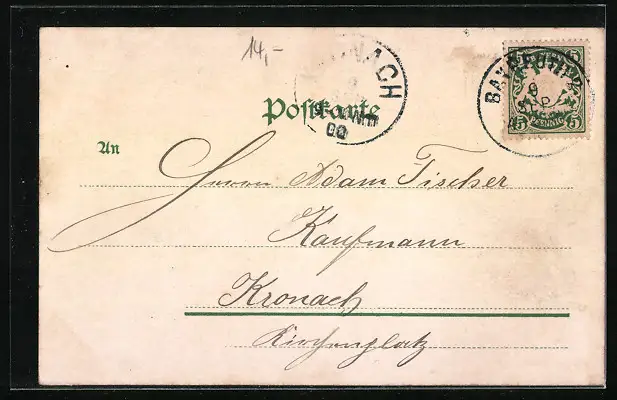 14,-
NACH
00
BAYREUTH
5 5
PFENNIG
Postkarte
An
Herrn Adam Fischer
Kaufmann
Kronach
Kirchenplatz